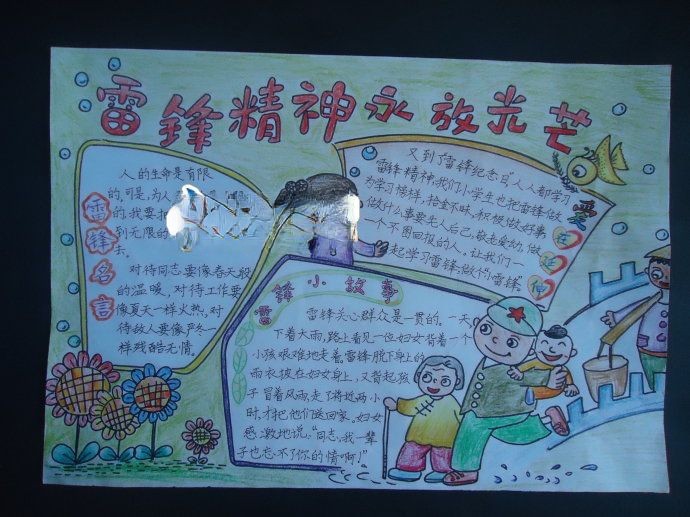 雷锋精神永放光芒
雷锋名言
人的生命是有限
的。可是,为人
的.我要把
到无限的
去。
对待同志要像春天般
的温暖,对待工作要
像夏天一样火热,对
待敌人要像严冬一
样残酷无情。
又到了雷锋纪念日,人人都学习
雷锋精神,我们小学生也把雷锋做
为学习榜样,拾金不昧,积极做好事
做什么事要先人后己,敬老爱幼,做
一个不图回报的人。让我们一
起学习雷锋,做“小雷锋”
爱在延伸
雷锋小故事
雷锋关心群众是一贯的。一天
下着大雨,路上看见一位妇女背着一个
小孩艰难地走着,雷锋脱下身上的
雨衣披在妇女身上,又背起孩
子冒着风雨走了将近两小
时才把他们送回家。妇女
感激地说:“同志,我一辈
子也忘不了你的情啊!”